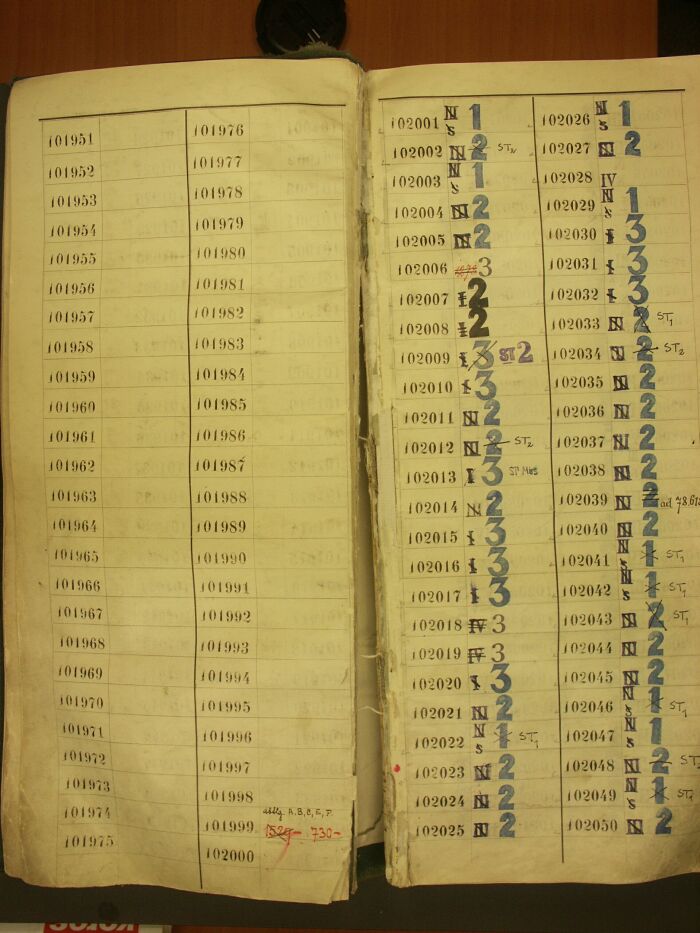 101951
101952
101953
101954
101955
101956
101957
101958
101959
101960
101961
101962
101963
101964
101965
101966
101967
101968
101969
101970
101971
101972
101973
101974
101975
101976
101977
101978
101979
101980
101981
101982
101983
101984
101985
101986
101987
101988
101989
101990
101991
101992
101993
101994
101995
101996
101997
101998
A.B,C,E,F.
101999 1529- 730-
102000
102001 N S 1
102002 N 2 ST2
102003 N S 1
102004 N 2
102005 N 2
102006 3
102007 I 2
102008 I 2
102009 I 3 ST 2
102010 I 3
102011 N 2
102012 N 2 ST2
102013 I 3
102014 N 2
102015 I 3
102016 I 3
102017 I 3
102018 IV 3
102019 IV 3
102020 I 3
102021 N 2
102022 N S 1 ST1
102023 N 2
102024 N 2
102025 N 2
102026 N S 1
102027 N 2
102028 IV
102029 N S 1
102030 I 3
102031 I 3
102032 I 3
102033 N 2 ST1
102034 N 2 ST2
102035 N 2
102036 N 2
102037 N 2
102038 N 2
102039 N 2 ad
102040 N 2
102041 N S 1 ST1
102042 N S 1 ST1
102043 N 2 ST1
102044 N 2
102045 N 2
102046 N S 1 ST1
102047 N S 1
102048 N 2 ST
102049 N S 1 ST1
102050 N 2